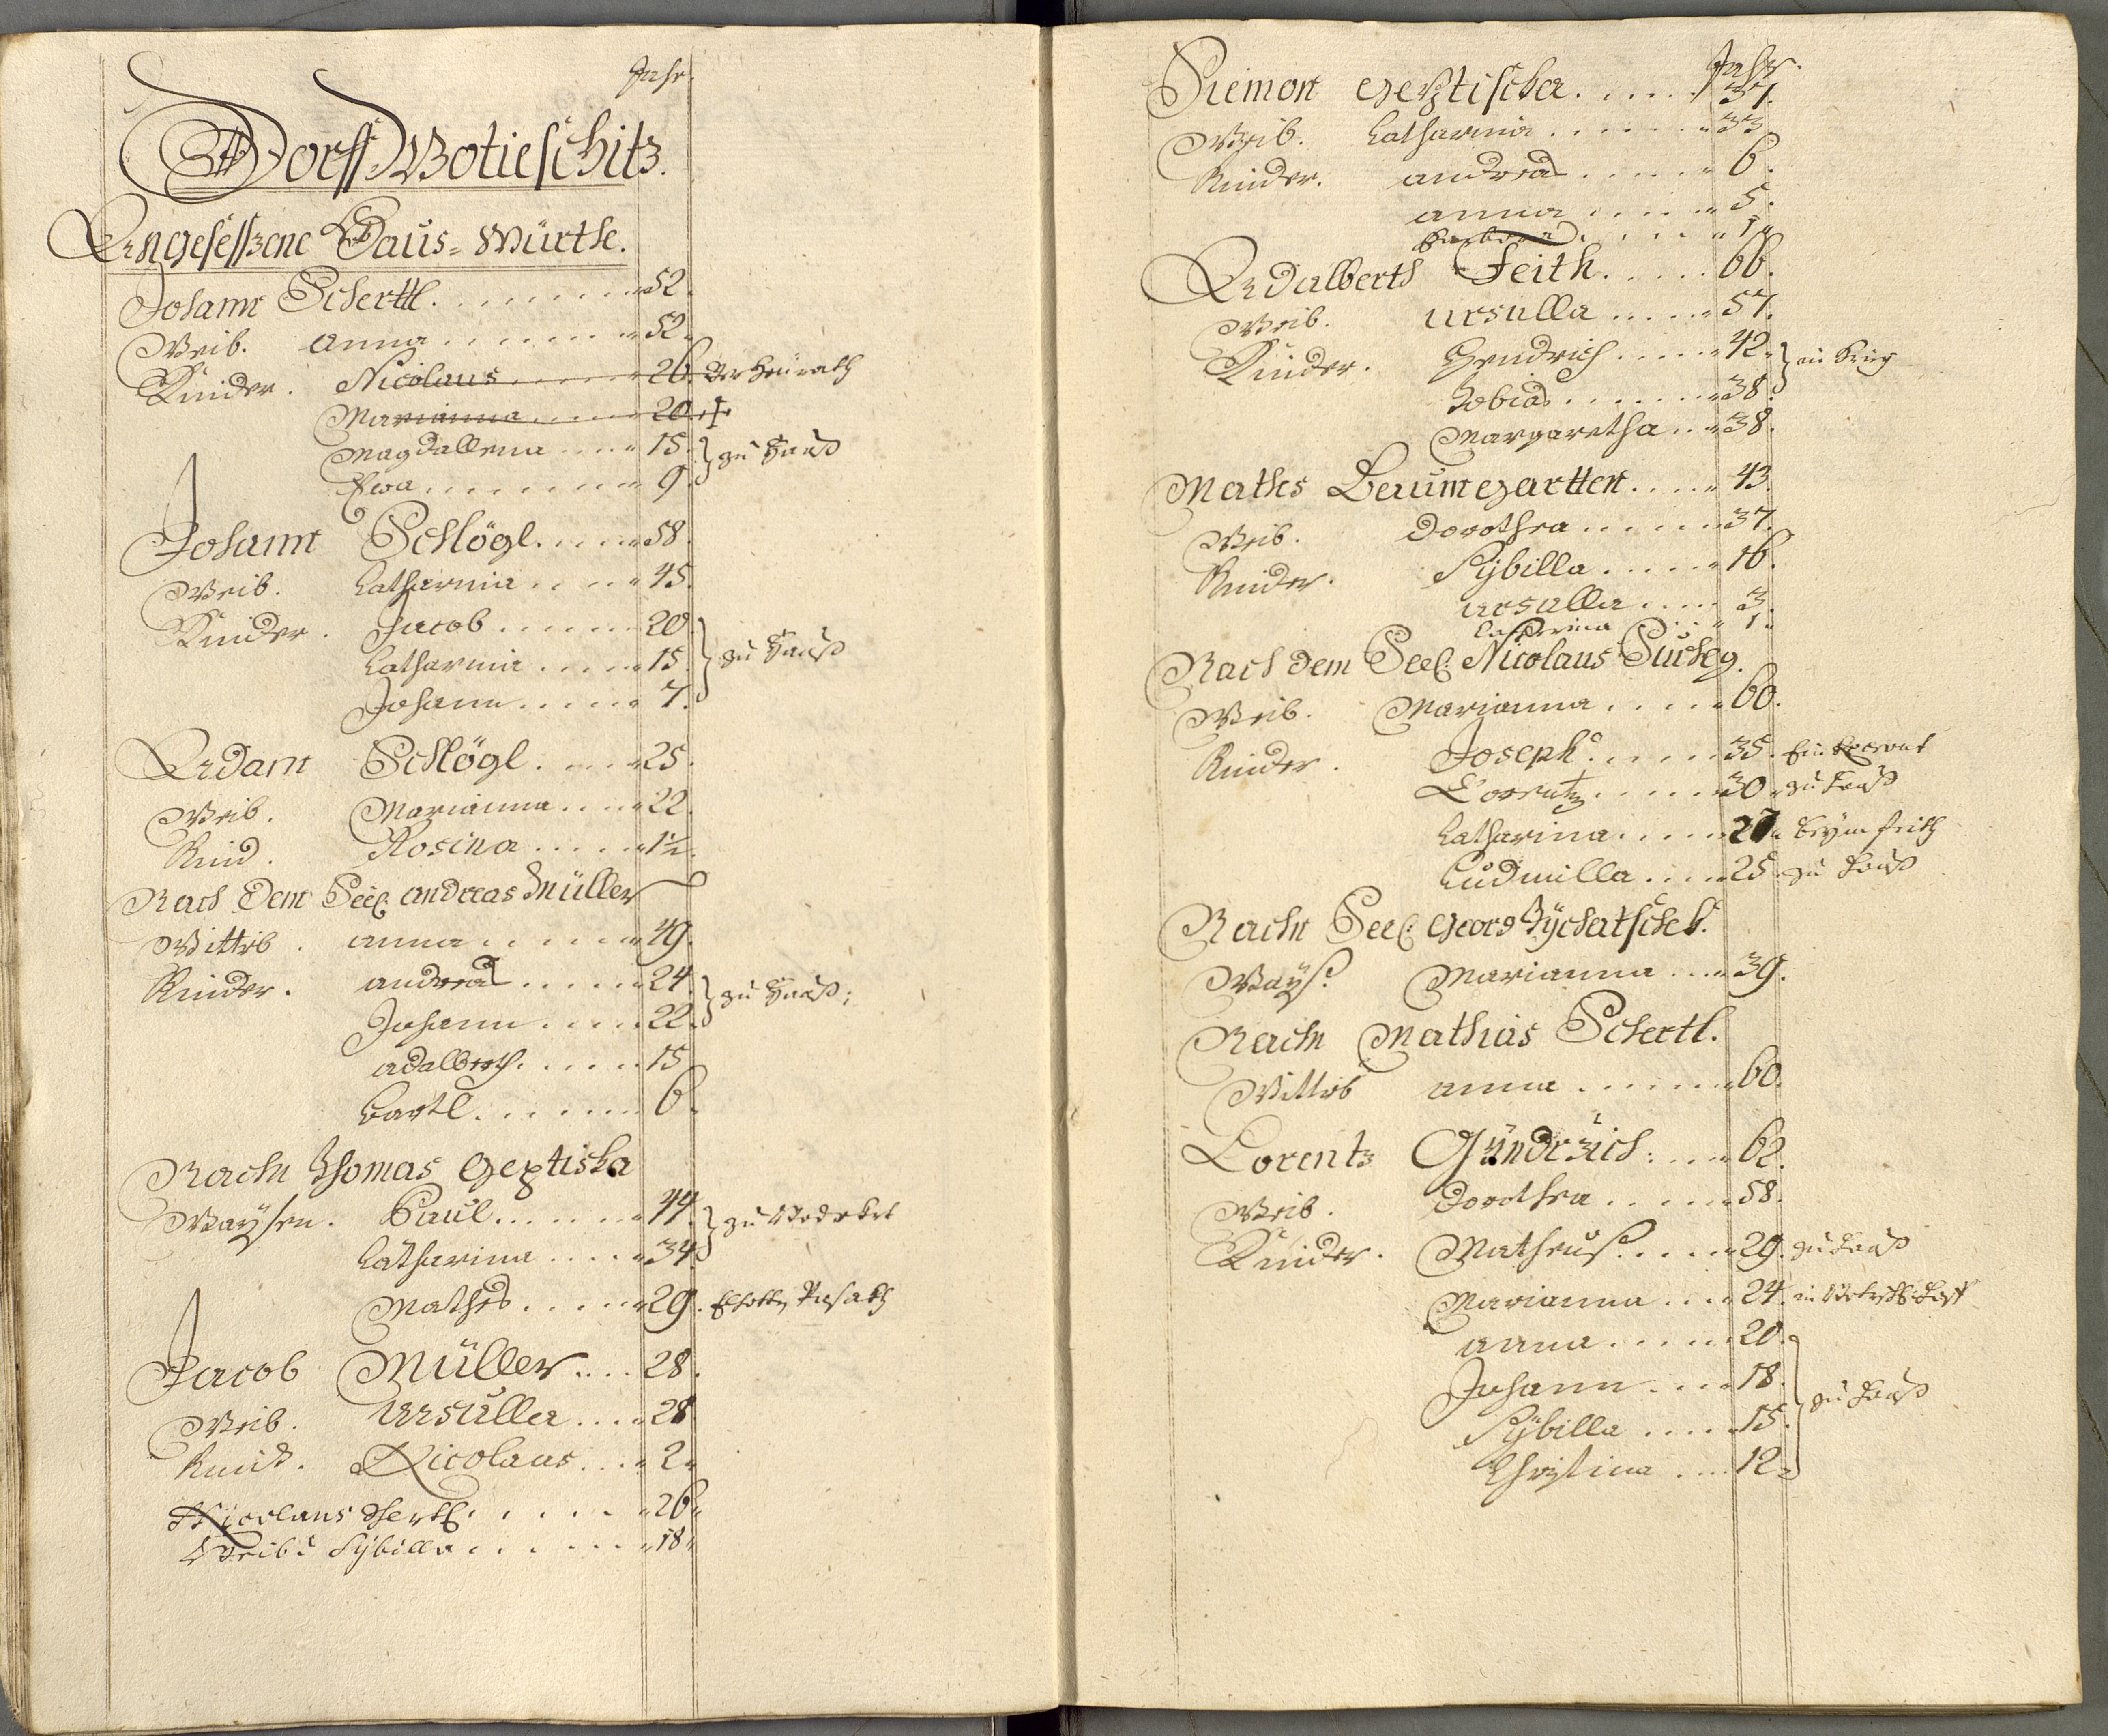 Jahr.
Dorff Wotieschitz.
Angesessene Haus=Würthe.
Johann Schertl. 52.
Weib. Anna 52.
Kinder. Nicolaus 26. Verheurath
Marianna 20 ✝
Magdallena 15. } zu Hauß
Eva 9.
Johann Schlögl. 58.
Weib. Catharina 45.
Kinder. Jacob 20. } zu Hauß
Catharina 15.
Johann 7.
Adam Schlögl. 25.
Weib. Marianna 22.
Kind. Rosina 1½.
Nach dem Seel. Andreas Müller
Wittib. Anna 49.
Kinder. Andreas 24. } zu Hauß;
Johann 22.
Adalberth. 15
Bartl. 6.
Nachn Thomas Geptiska
Waysen. Paul 44. } zu
Catharina 34.
Mathes 29.
Jacob Müller 28.
Weib. Ursulla 28
Kind. Nicolaus 2.
Nicolaus Schertl. 26.
Weib: Sybilla 18.
Jahr.
Siemon Geptischa. 37.
Weib. Catharina 33
Kinder. Andreas 6.
Anna 5.
Barbara 1.
Adalberth Feith. 66.
Weib. Ursulla 57.
Kinder. Hendrich 42. } in Krieg
Tobias 38.
Margaretha 38.
Mathes Baumgartten. 43.
Weib. Dorothea 37.
Kinder. Sybilla 16.
Ursulla 3.
Catharina 1.
Nach dem Seel. Nicolaus Suchy.
Weib. Marianna 60.
Kinder. Joseph 35.
Lorentz 30. zu Hauß
Catharina 27. beym Feith
Ludmilla 25. zu Hauß
Nachn Seel. Georg Tychatschek.
Ways. Marianna 39.
Nachn Mathias Schertl.
Wittib Anna 60.
Lorentz Gündrich. 62.
Weib. Dorothea 58.
Kinder. Matheus 29. zu Hauß
Marianna 24. in
Anna 20. } zu Hauß
Johann 18.
Sybilla 15.
Christina 12.